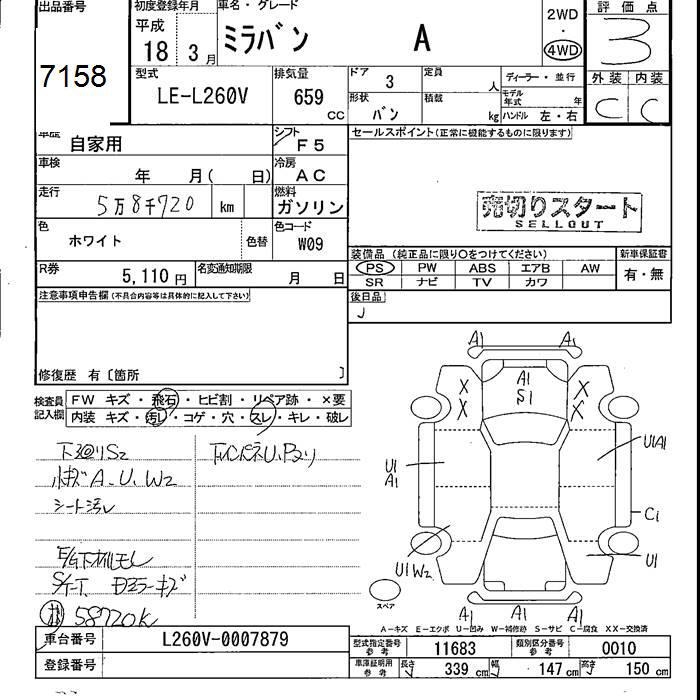 出品番号
7158
初度登録年月
平成
18 3月
車名・グレード
ミラバン A
2WD
・
4WD
評価点
3
外装 内装
C C
型式
LE-L260V
排気量
659 cc
ドア 3
定員 人
形状 バン
積載 kg
ディーラー・並行
モデル年式 年
ハンドル 左・右
車歴 自家用
シフト F5
車検 年 月( 日)
冷房 AC
走行 5万8千720 km
燃料 ガソリン
色 ホワイト
色替
色コード W09
R券 5,110円
名変通知期限 月 日
セールスポイント(正常に機能するものに限ります)
売切りスタート
SELLOUT
装備品(純正品に限り○をつけてください)
新車保証書
PS PW ABS エアB AW
有・無
SR ナビ TV カワ
後日品
注意事項申告欄(不具合内容等は具体的に記入して下さい)
修復歴 有〔箇所 〕
検査員記入欄
FW キズ・飛石・ヒビ割・リペア跡・×要
内装 キズ・汚レ・コゲ・穴・スレ・キレ・破レ
下廻りS2
小キズA.U.W2
シート汚レ
58720K
A1 A1
A1
S1
X X
X X
U1
A1
U1A1
C1
U1W2
U1
スペア
A1 A1 A1
A-キズ E-エクボ U-凹み W-補修跡 S-サビ C-腐食 XX-交換済
車台番号 L260V-0007879
登録番号
型式指定番号参考 11683
類別区分番号参考 0010
車庫証明用参考 長さ 339 cm 幅 147 cm 高さ 150 cm